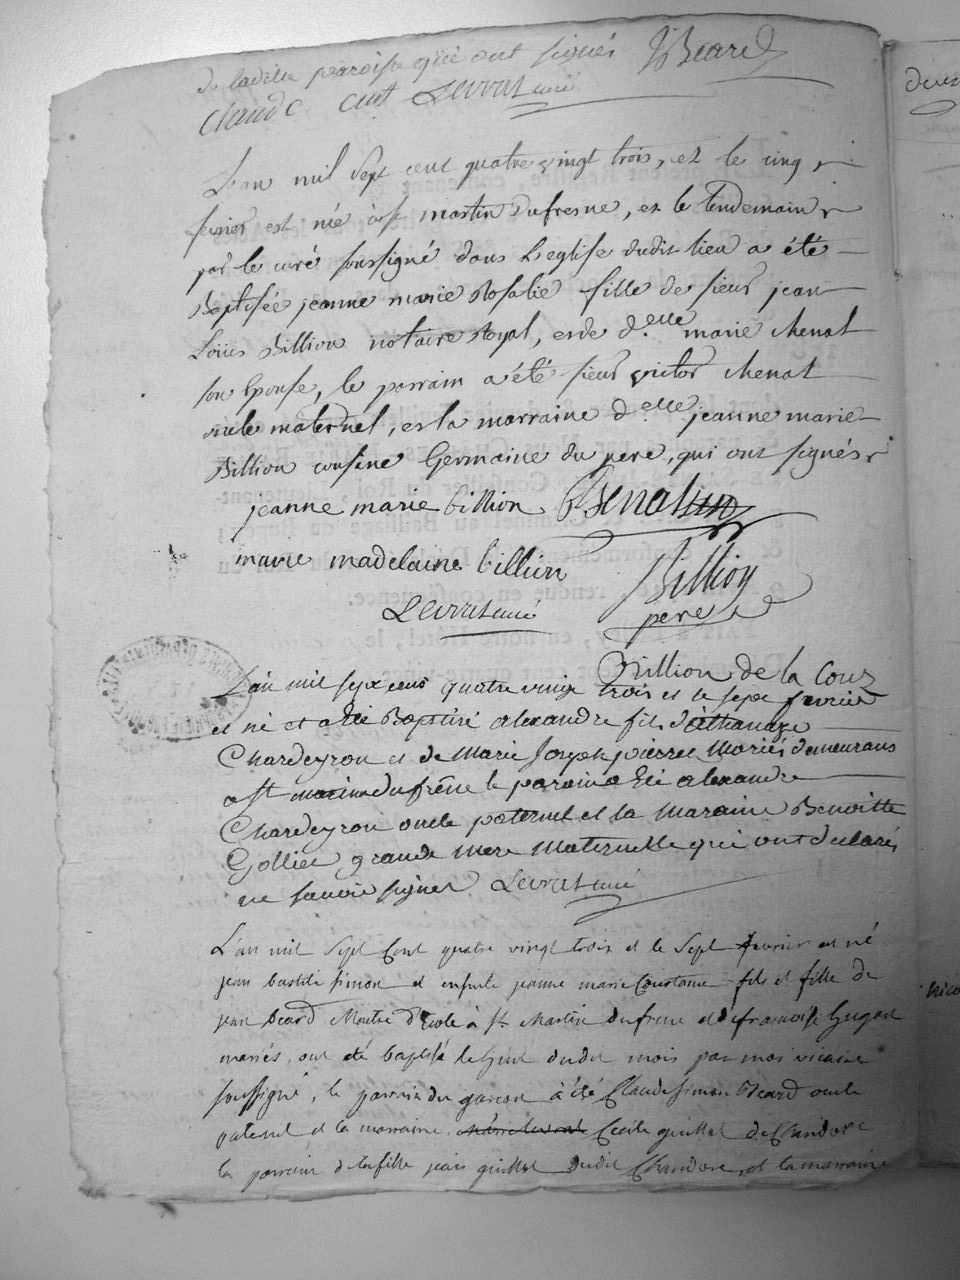 de ladite paroisse qui ont signés JBeard
Claude Cut Levrat curé
L'an mil Sept cent quatre vingt trois, et le cinq
fevrier est née à st martin Dufresne, et le lendemain
par le curé soussigné dans L'eglise dudit lieu a été
Baptisée jeanne marie Rosalie fille de sieur jean
Loüis Billion notaire Royal, et de d.elle marie chenat
son Epouse, le parrain a été sieur victor chenat
oncle maternel, et la marraine d.elle jeanne marie
Billion cousine Germaine du pere, qui ont signés
jeanne marie billion
marie madelaine billion Billion
Levrat curé pere
Billion de la Cour
L'an mil sept cens quatre vingt trois et le sept fevrier
est né et a été Baptisé alexandre fils d'athanaze
Chardeyron et de Marie Joseph pierret Mariés demeurans
a st martin dufrêne le parain a Eté alexandre
Chardeyron oncle paternel et la Maraine Benoitte
Gollier grande Mere Maternelle qui ont declarés
ne savoir signer Levrat curé
L'an mil Sept Cent quatre vingt trois et le Sept fevrier est né
jean batiste simon et ensuite jeanne marie Constance fils et fille de
jean Beard Maitre d'Ecole à st Martin dufrene et de francoise hugon
mariés, ont été baptisé le huit dudit mois par moi vicaire
soussigné, le parrain du garcon à été Claude Simon Beard oncle
paternel et la marraine Cecile guillot de Chandore
le parrain de la fille jean guillot dudit Chandore, et la marraine